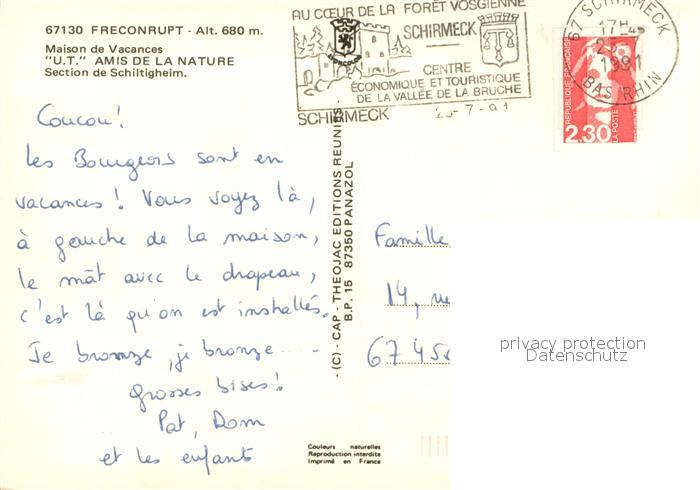 67130 FRECONRUPT - Alt. 680 m.
Maison de Vacances
"U.T." AMIS DE LA NATURE
Section de Schiltigheim.
AU CŒUR DE LA FORÊT VOSGIENNE
SCHIRMECK
CENTRE
ÉCONOMIQUE ET TOURISTIQUE
DE LA VALLÉE DE LA BRUCHE
SCHIRMECK 25-7-91
67 SCHIRMECK
17H45
25-
1991
BAS RHIN
REPUBLIQUE FRANÇAISE
LA POSTE
2,30
Coucou!
Les Bourgeois sont en
vacances! Vous voyez là,
à gauche de la maison,
le mât avec le drapeau,
c'est là qu'on est installés.
Je bronze, je bronze.....
grosses bises!
Pat, Dom
et les enfants
- (C) - CAP - THEOJAC EDITIONS REUNIES -
B.P. 15 87350 PANAZOL
Famille
14, rue
6745
privacy protection
Datenschutz
Couleurs naturelles
Reproduction interdite
Imprimé en France